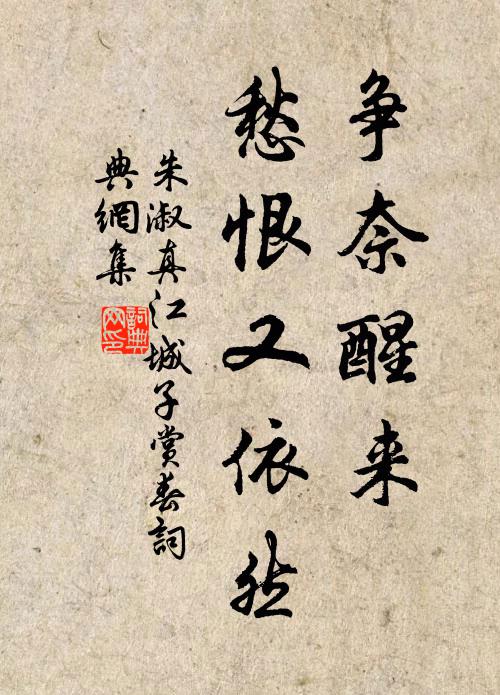 争奈醒来
愁恨又依然
朱淑真江城子赏春詞
典網集
詞典
网印